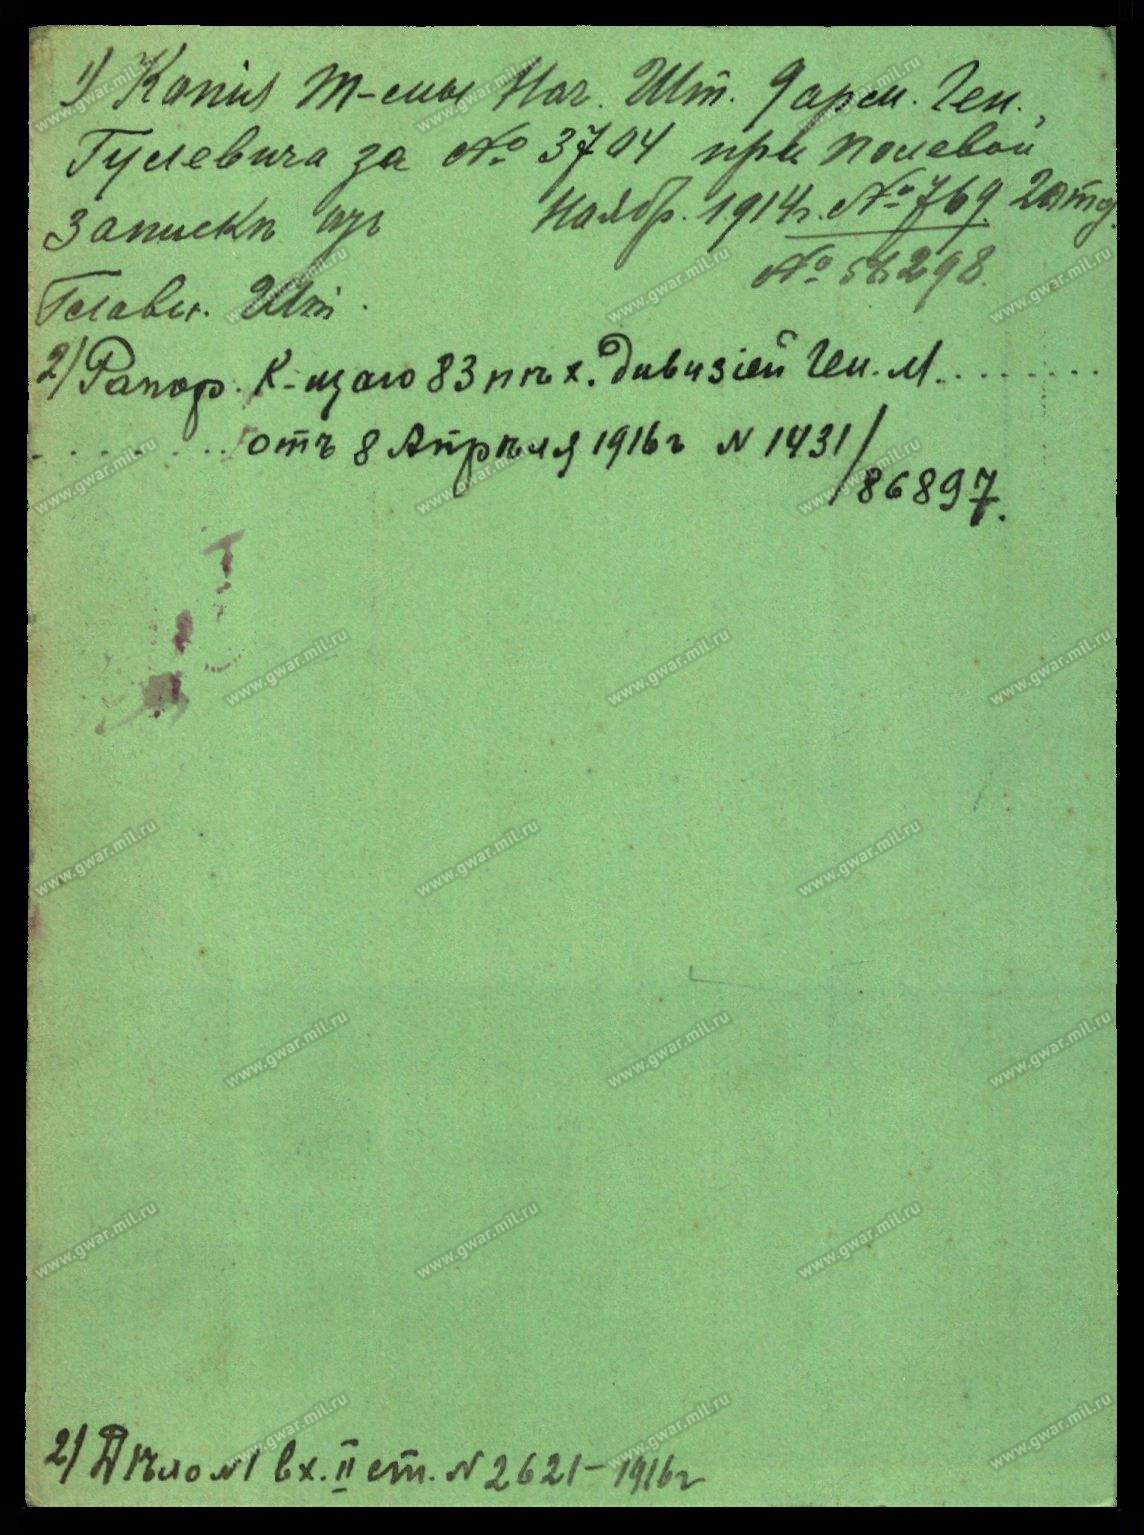 1) Копія т-мы Нач. Шт. 9 арм. Ген.
Гулевича за № 3704 при полевой
Запискѣ изъ Ноябр. 1914г. № 769 2 отд.
Главн. Шт. № 298.
2) Рапор. К-щаго 83 пѣх. дивизіей Ген. М. . . . . . . . .
. . . . . . . . . отъ 8 Апрѣля 1916г N 1431/
86897.
2) Дѣло N1 вх. II ст. N 2621-1916г